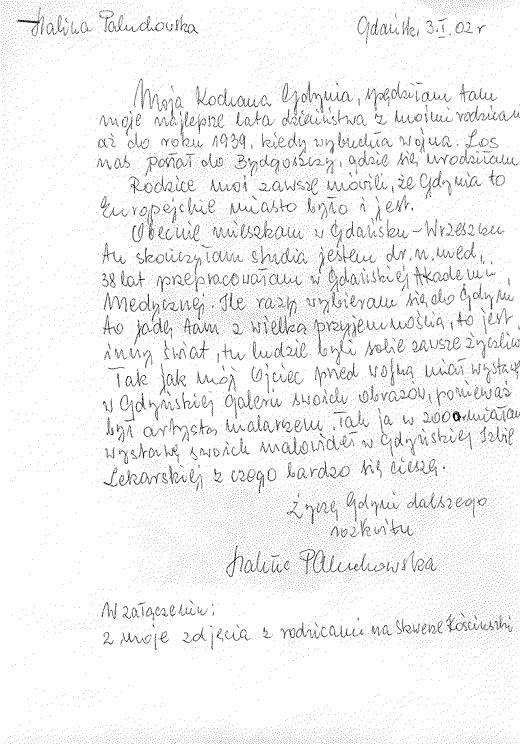 Halina Paluchowska Gdańsk, 3.I.02 r
Moja Kochana Gdynia, spędziłam tam
moje najlepsze lata dzieciństwa z moimi rodzicami
aż do roku 1939, kiedy wybuchła wojna. Los
nas pognał do Bydgoszczy, gdzie się urodziłam
Rodzice moi zawsze mówili, że Gdynia to
Europejskie miasto było i jest.
Obecnie mieszkam w Gdańsku-Wrzeszczu
tu skończyłam studia jestem dr. n. med.,
38 lat przepracowałam w Gdańskiej Akademii
Medycznej. Ile razy wybieram się do Gdyni
to jadę tam z wielką przyjemnością, to jest
inny świat, tu ludzie byli sobie zawsze życzliwi
Tak jak mój Ojciec przed wojną miał wystawę
w Gdyńskiej Galerii swoich obrazów, ponieważ
był artystą malarzem. Tak ja w 2000r miałam
wystawę swoich malowideł w Gdyńskiej Izbie
Lekarskiej z czego bardzo się cieszę.
Życzę Gdyni dalszego
rozkwitu
Halina PAluchowska
W załączeniu:
2 moje zdjęcia z rodzicami na Skwerze Kościuszki